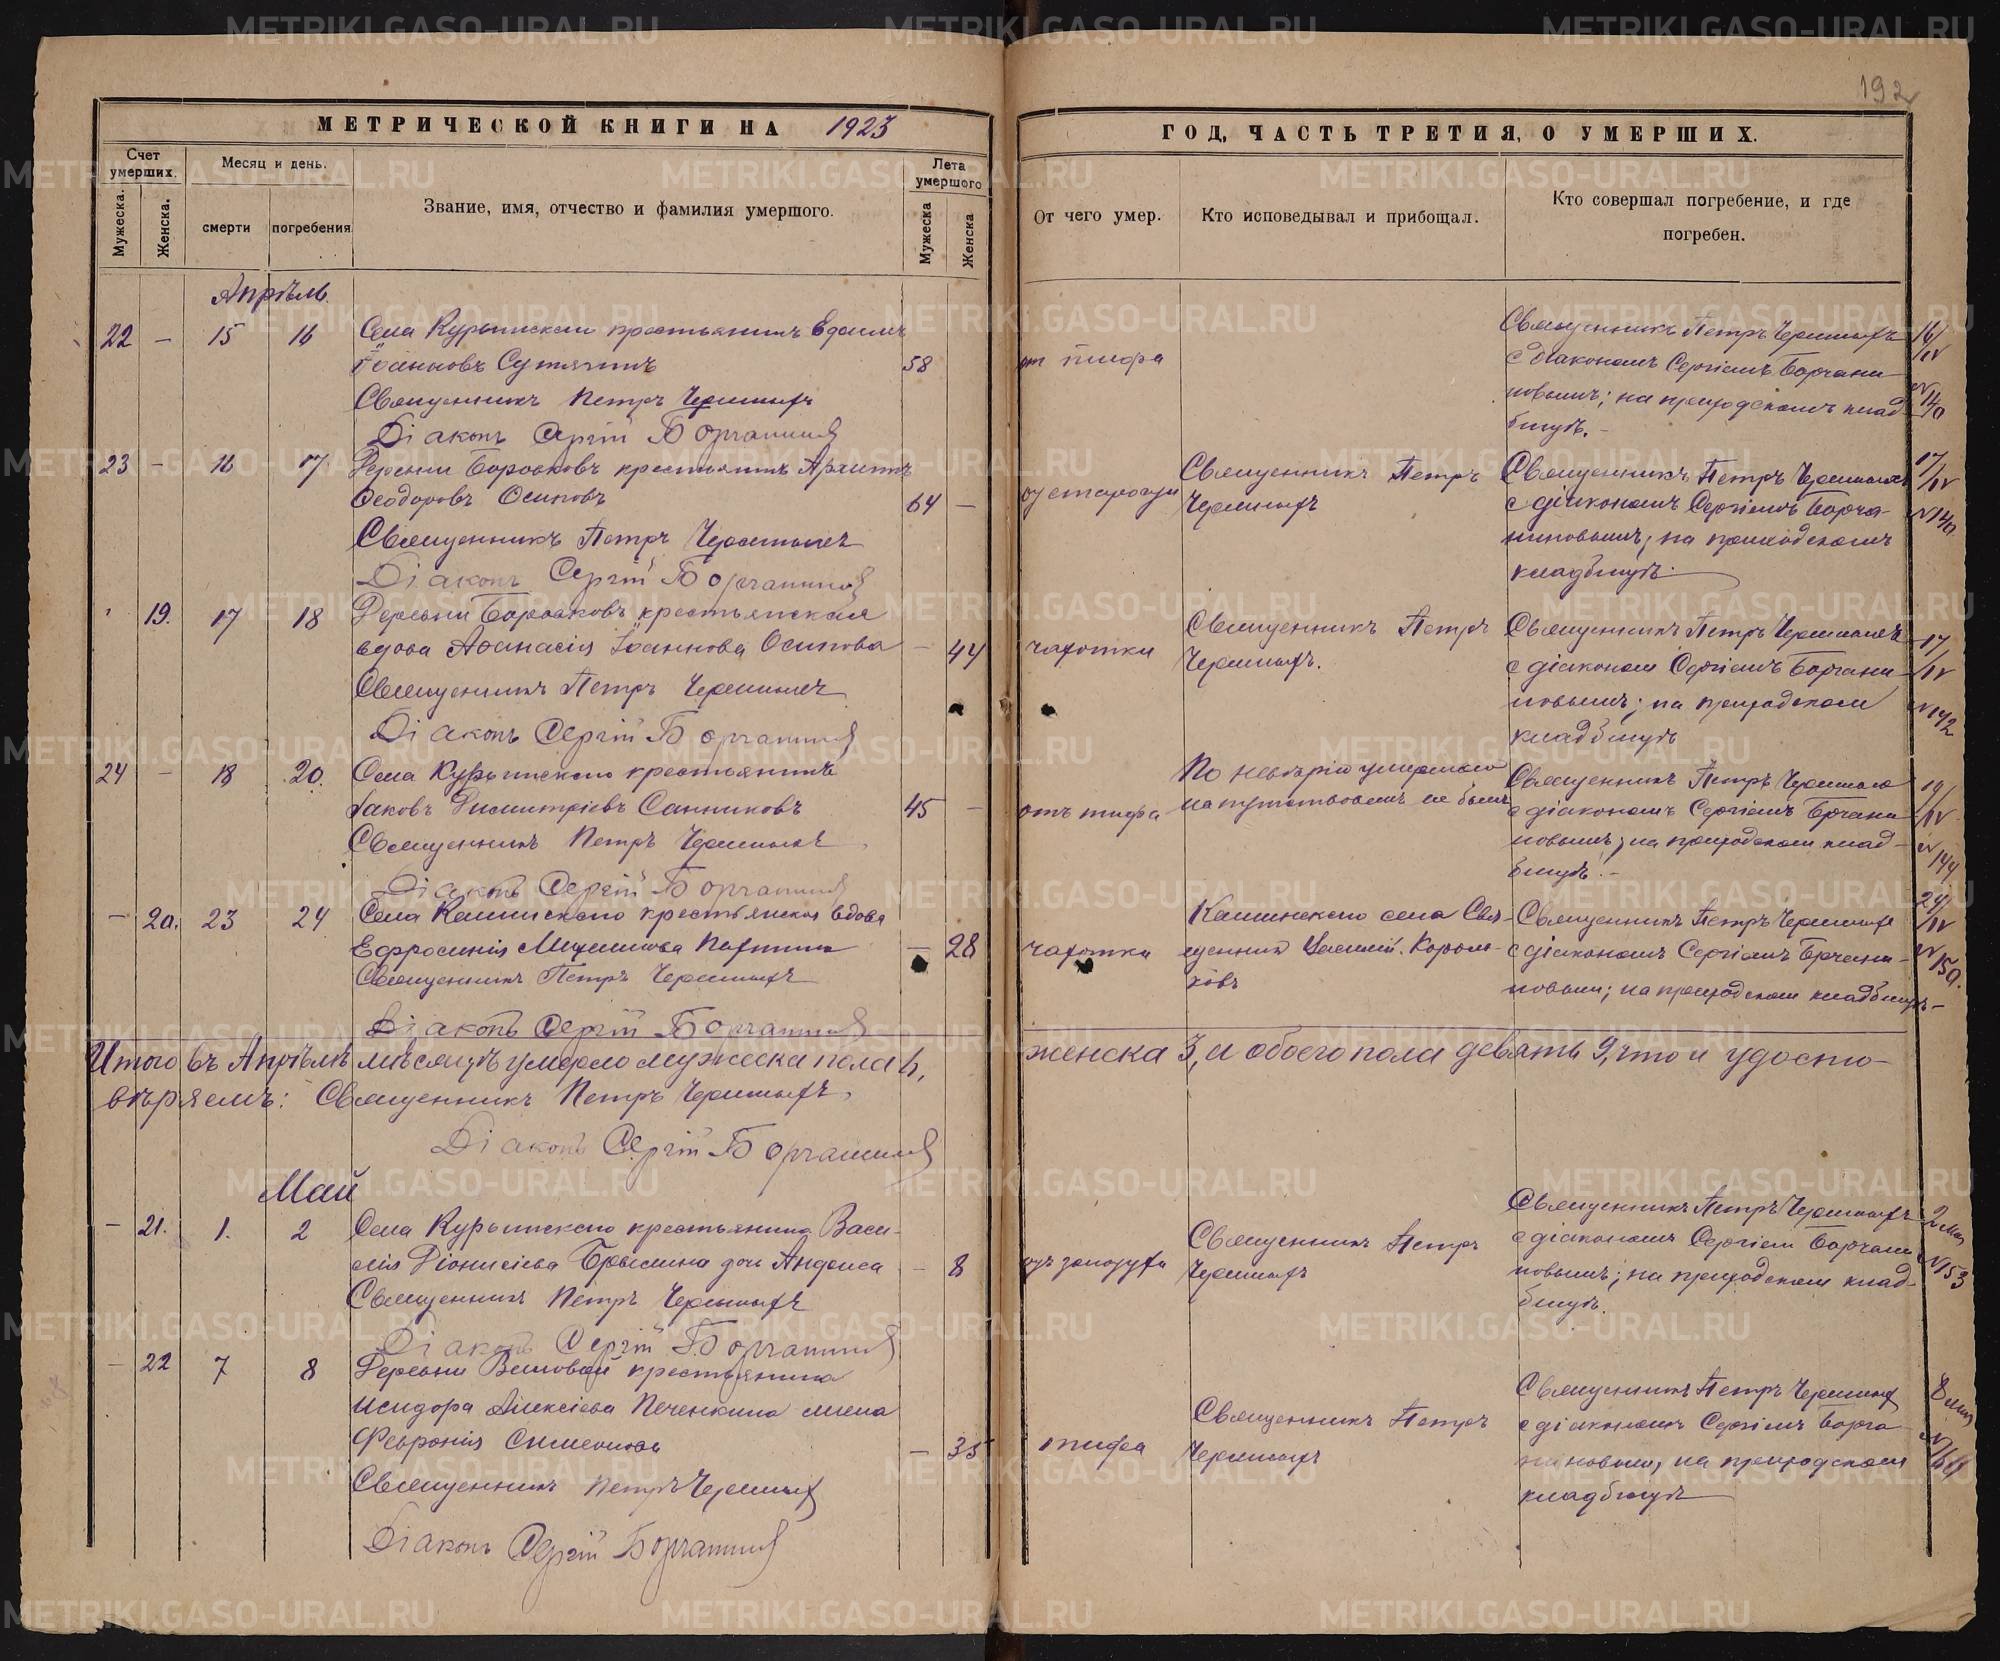 192
МЕТРИЧЕСКОЙ КНИГИ НА 1923
ГОД, ЧАСТЬ ТРЕТИЯ, О УМЕРШИХ.
Счет умерших.
Мужеска.
Женска.
Месяц и день.
смерти
погребения
Звание, имя, отчество и фамилия умершого.
Лета умершого
Мужеска
Женска
От чего умер.
Кто исповедывал и прибощал.
Кто совершал погребение, и где
погребен.
Апрѣль.
22 — 15 16
Села Курьинскаго крестьянинъ
Іоанновъ Сутягинъ 58
Священникъ Петръ Черемныхъ
Діаконъ Сергій Борчаниновъ
от тифа
Священникъ Петръ Черемныхъ
с діакономъ Сергіемъ Борчани
новымъ; на приходскомъ клад
бищѣ. —
16/IV
№ 140
23 — 16 17
Деревни Бороськовъ крестьянинъ Архиппъ
Ѳеодоровъ Осиповъ 64 —
Священникъ Петръ Черемныхъ
Діаконъ Сергій Борчаниновъ
Священникъ Петръ
Черемныхъ
Священникъ Петръ Черемныхъ
с діакономъ Сергіемъ Борча-
ниновымъ, на приходскомъ
кладбищѣ.
17/IV
19. 17 18
крестьянская
вдова Аѳанасія Іоаннова Осипова — 44
Священникъ Петръ Черемныхъ
Діаконъ Сергій Борчаниновъ
чахотки
Священникъ Петръ
Черемныхъ.
Священникъ Петръ Черемныхъ
с діакономъ Сергіемъ Борчани
новымъ; на приходскомъ
кладбищѣ
17/IV
№ 142
24 — 18 20.
Села Курьинскаго крестьянинъ
Іаковъ Димитріевъ Санниковъ 45 —
Священникъ Петръ Черемныхъ
Діаконъ Сергій Борчаниновъ
отъ тифа
По невѣрію умершаго
напутствованъ не былъ
Священникъ Петръ Черемныхъ
с діакономъ Сергіемъ Борчани
новымъ; на приходскомъ клад-
бищѣ. —
19/IV
№ 144
— 20. 23 24
Села Кашинскаго крестьянская вдова
Ефросинія — 28
Священникъ Петръ Черемныхъ
Діаконъ Сергій Борчаниновъ
чахотки
Кашинскаго села Свя-
щенник Василій Корол-
ковъ
Священникъ Петръ Черемныхъ
с діакономъ Сергіемъ Борчани-
новымъ; на приходскомъ кладбищѣ—
24/IV
№ 150.
Итого въ Апрѣлѣ мѣсяцѣ умерло мужеска пола 6,
женска 3, и обоего пола девять 9, что и удосто-
вѣряемъ: Священникъ Петръ Черемныхъ.
Діаконъ Сергій Борчаниновъ
Май
— 21. 1. 2
Села Курьинскаго крестьянина Васи-
лія Діонисіева Брысина дочь — 8
Священникъ Петръ Черемныхъ
Діаконъ Сергій Борчаниновъ
Священникъ Петръ
Черемныхъ
Священникъ Петръ Черемныхъ
с діакономъ Сергіем Борчани
новымъ; на приходскомъ клад-
бищѣ.
2 мая
№ 153
— 22 7 8
Деревни крестьянина
Исидора Алексіева Печенкина жена
Феврония Симеонова — 35
Священникъ Петръ Черемныхъ
Діаконъ Сергій Борчаниновъ
тифа
Священникъ Петръ
Черемныхъ
Священникъ Петръ Черемныхъ
с діакономъ Сергіемъ Борча-
ниновымъ, на приходскомъ
кладбищѣ
8 мая
METRIKI.GASO-URAL.RU